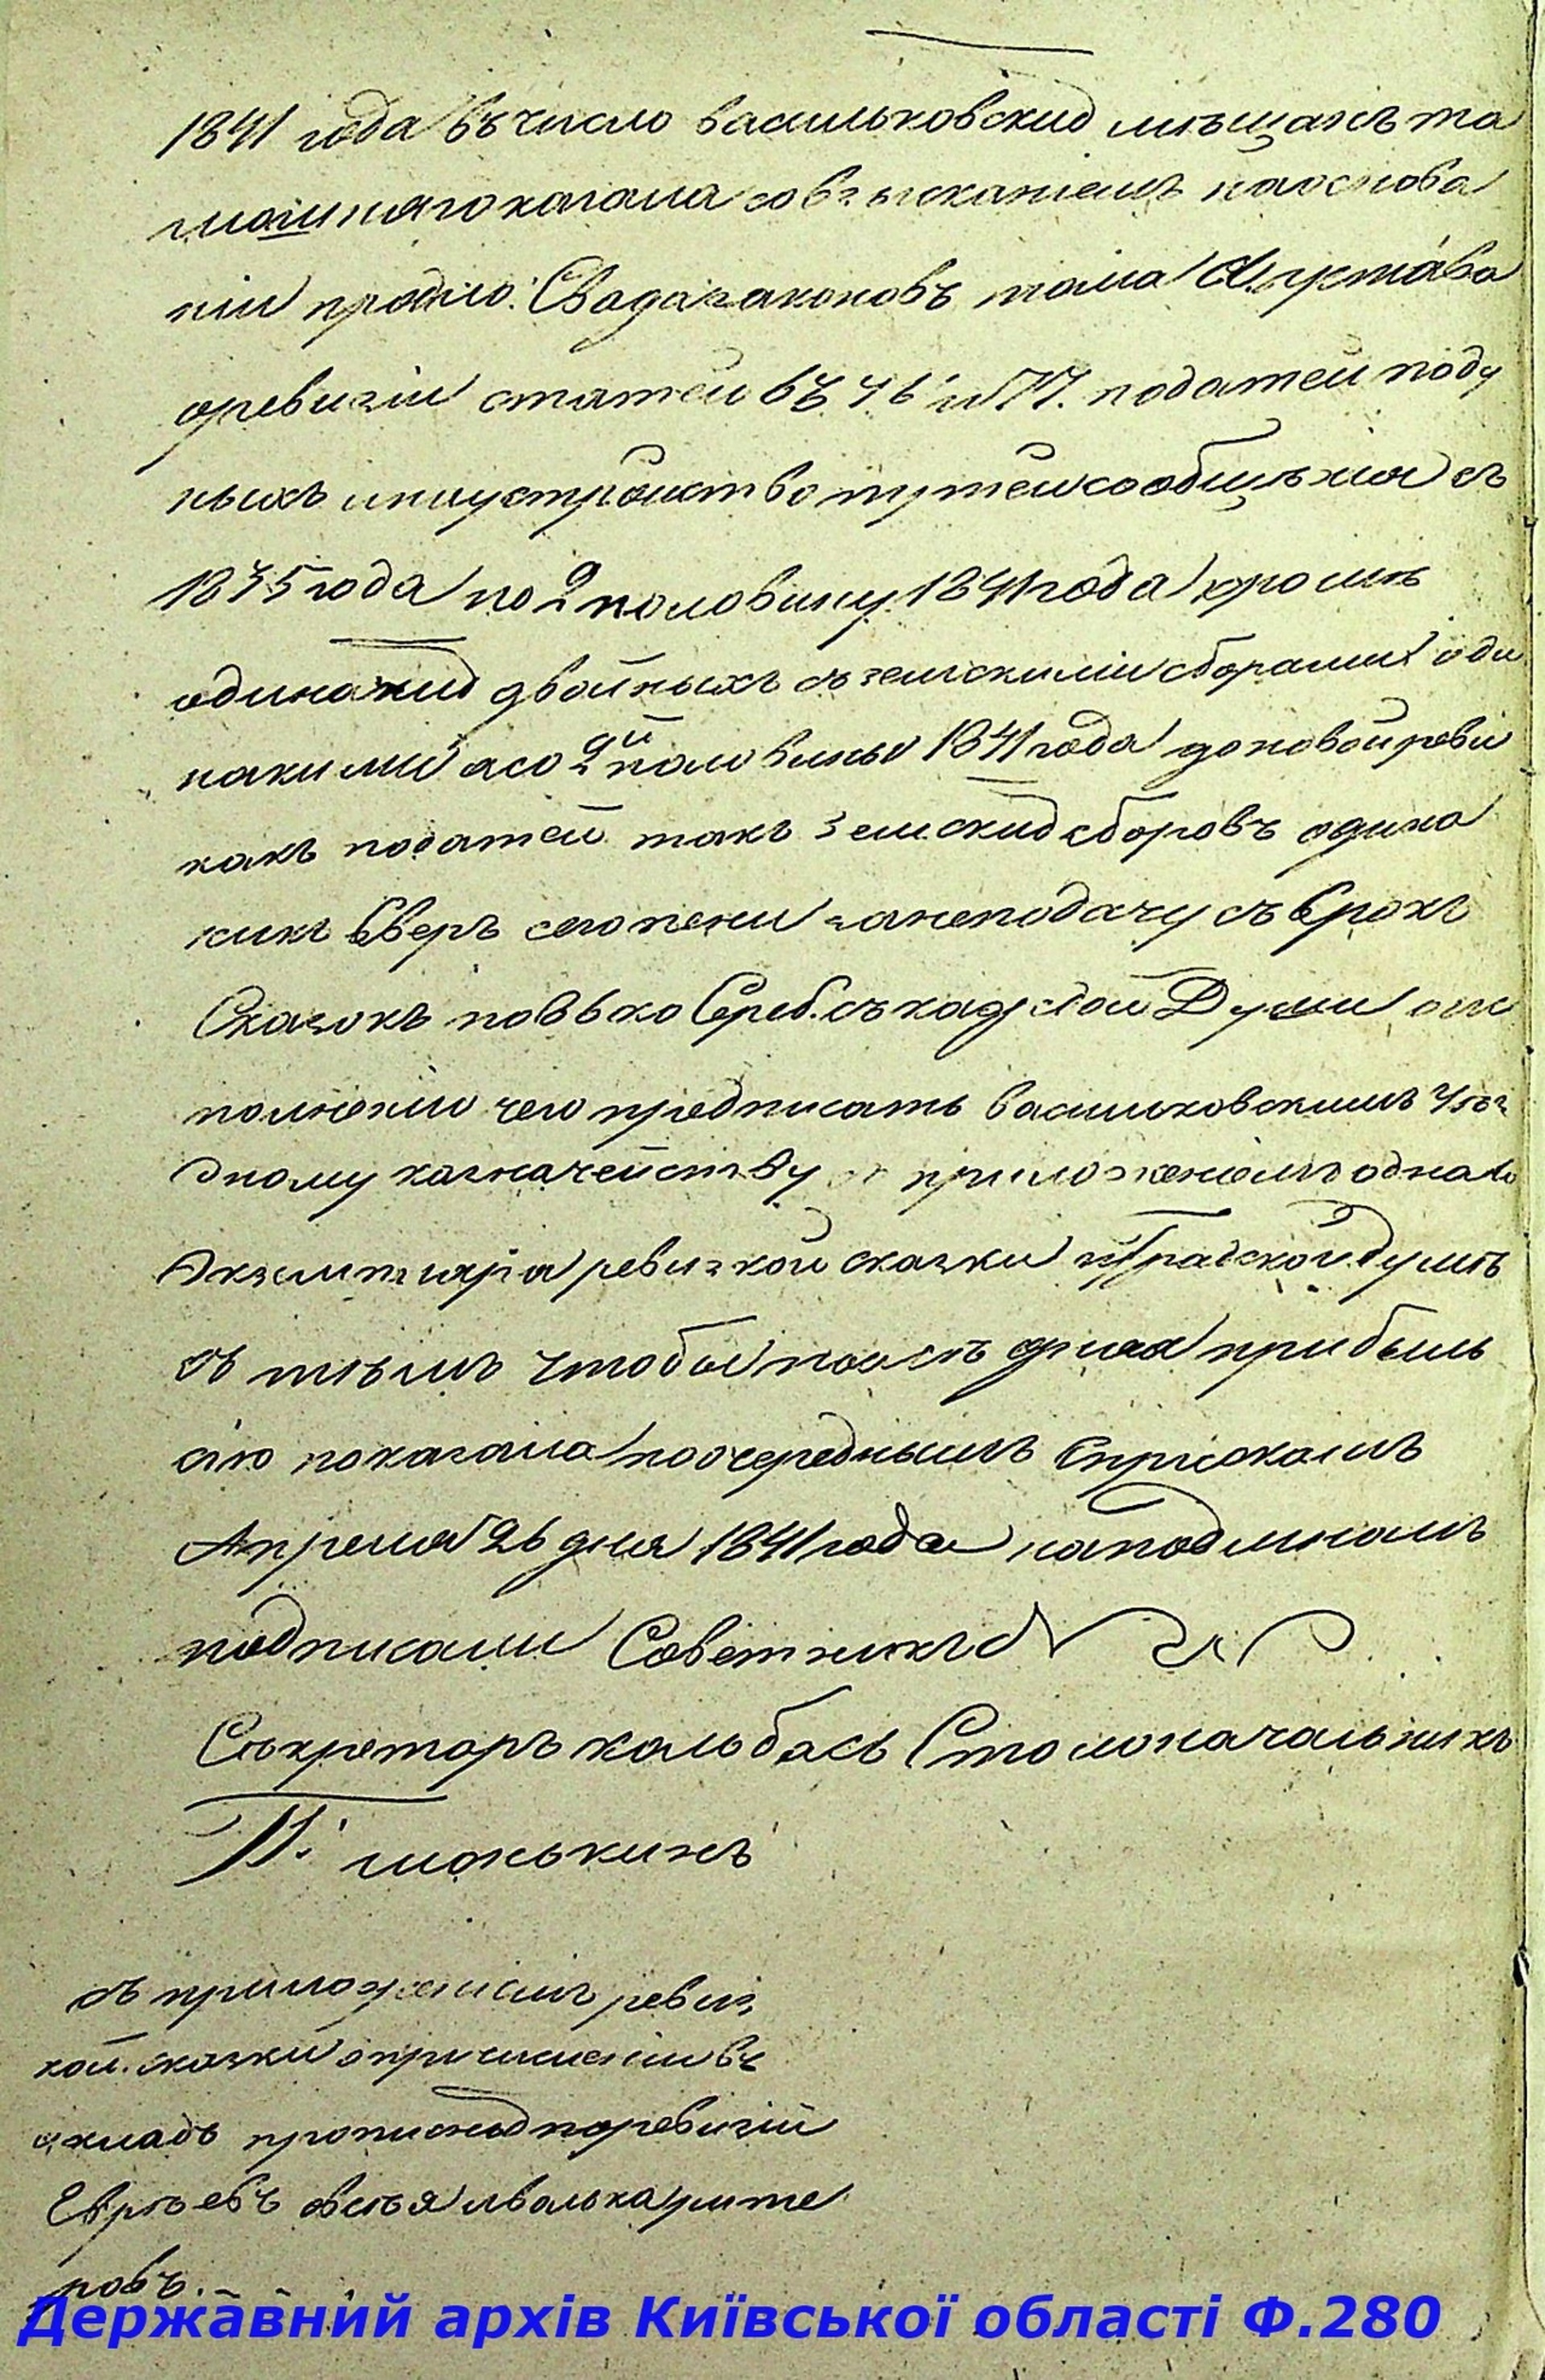 1841 года въ число васильковских мѣщанъ та
мошняго кагала со взысканіемъ на основа
ніи продлю: Свода законовъ тома Устава
о ревизіи статей и 77. податей поду
ныхъ и на устройство путей сообщенія съ
1835 года по 2 половину 1841 года кромѣ
одинаких двойныхъ съ земскими сборами оди
накими а со 2й половины 1841 года до новой реви
какъ податей такъ земских сборовъ одина
кихъ Сверъ сего пени за неподачу съ Срокъ
Сказокъ по Сереб. съ каждой Души о ис
полненіи чего предписать васильковскимъ Уѣз
дному казначейству приложеніемъ однаго
Экземпляра ревизкой сказки и Градской Думѣ
съ тѣмъ чтобы прибыль
сію показала по очереднымъ Спискамъ
Апреля 26 дня 1841 года на подлиномъ
подписали Советникъ
Сѣкретарь кольбась Столоначальникъ
съ приложеніемъ ревиз
кой. сказки о причисленіи въ
окладъ прописных по ревизіи
Евреѣвъ
ровъ.
Державний архів Київської області Ф.280